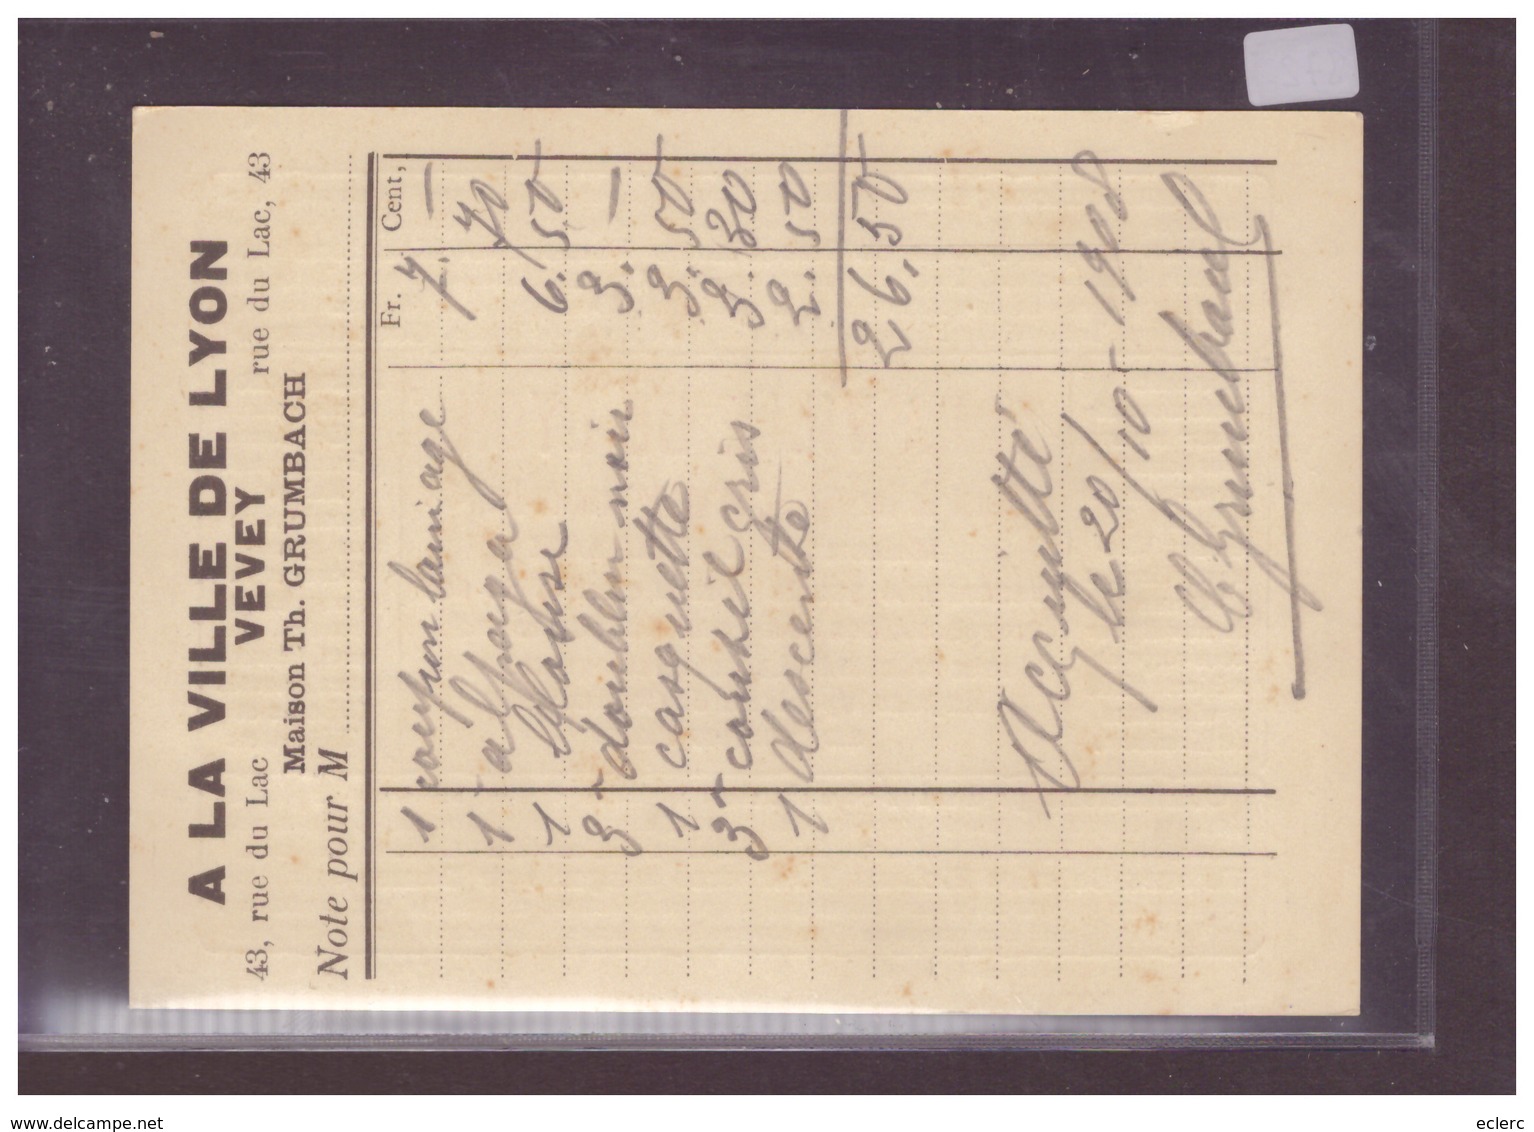 A LA VILLE DE LYON
43, rue du Lac VEVEY rue du Lac, 43
Maison Th. GRUMBACH
Note pour M
Fr. Cent,
1 coupon lainage 7. —
1 alpaga 70
1 blouse 6. 50
3 doubleu noir 3. —
1 casquette 3. 50
3 cris 3. 30
1 descente 2. 50
26. 50
Acquitté
le 20/10 1908
Grumbach
www.delcampe.net
eclerc